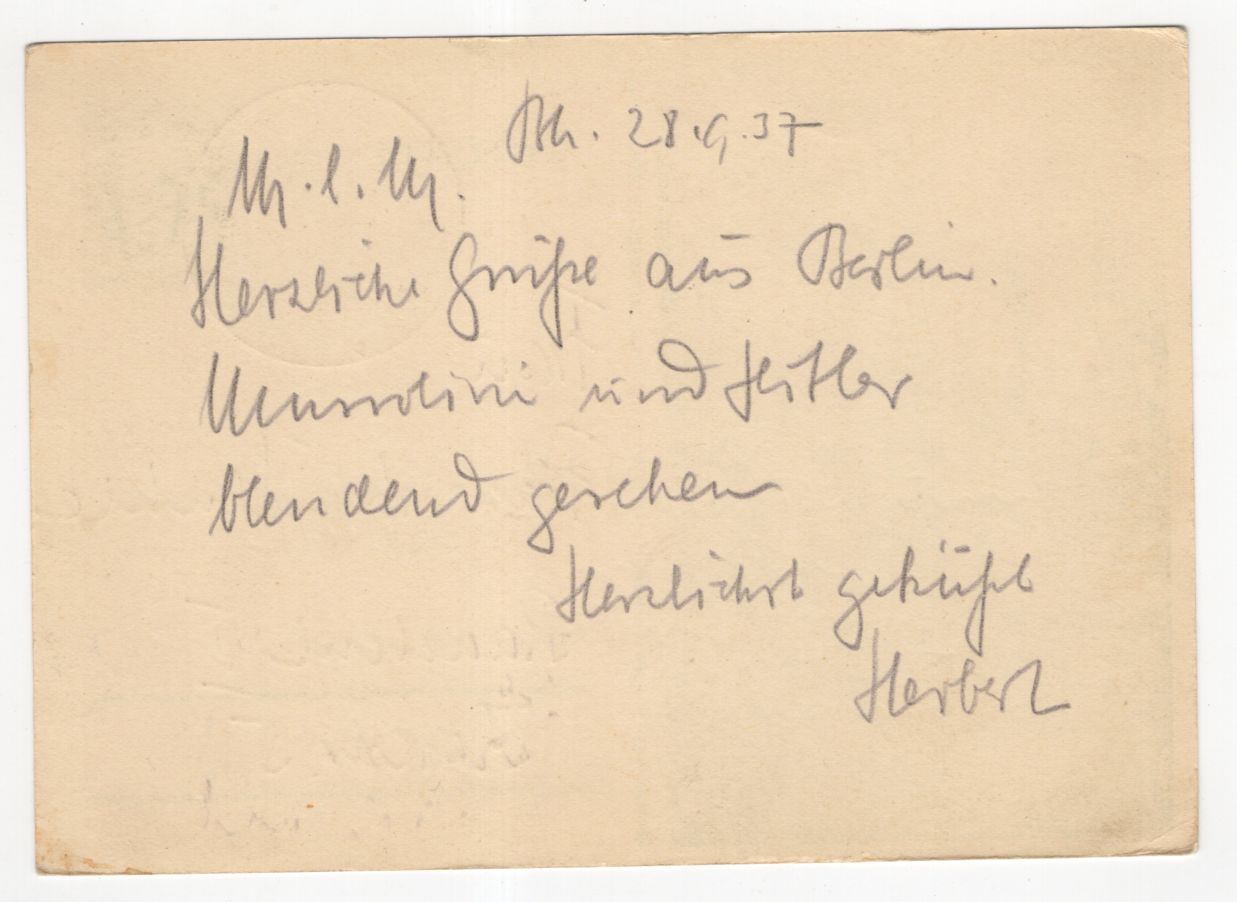 Bln. 28.9.37
M.l.M.
Herzliche Grüße aus Berlin.
Mussolini und Hitler
blendend gesehen
Herzlichst geküßt
Herbert